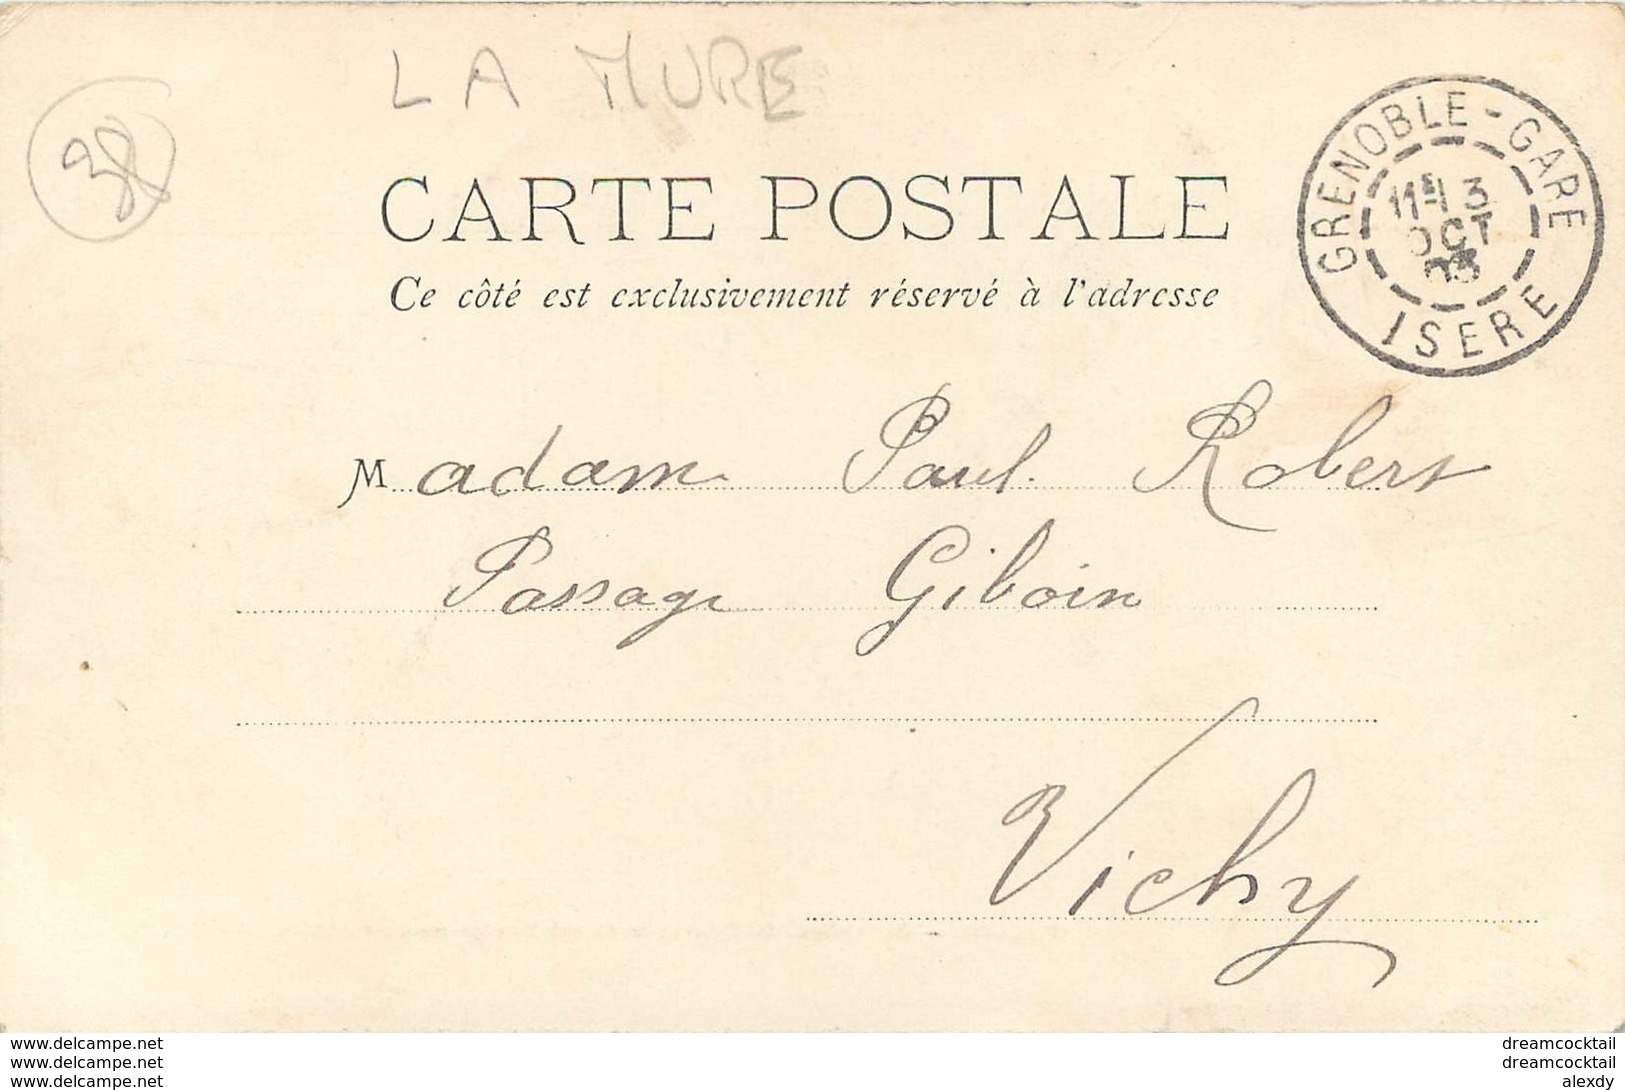 LA MURE
38
CARTE POSTALE
Ce côté est exclusivement réservé à l'adresse
GRENOBLE - GARE
11E 3
OCT
03
ISERE
Madame Paul Robert
Passage Giboin
Vichy
www.delcampe.net
www.delcampe.net
www.delcampe.net
dreamcocktail
dreamcocktail
alexdy